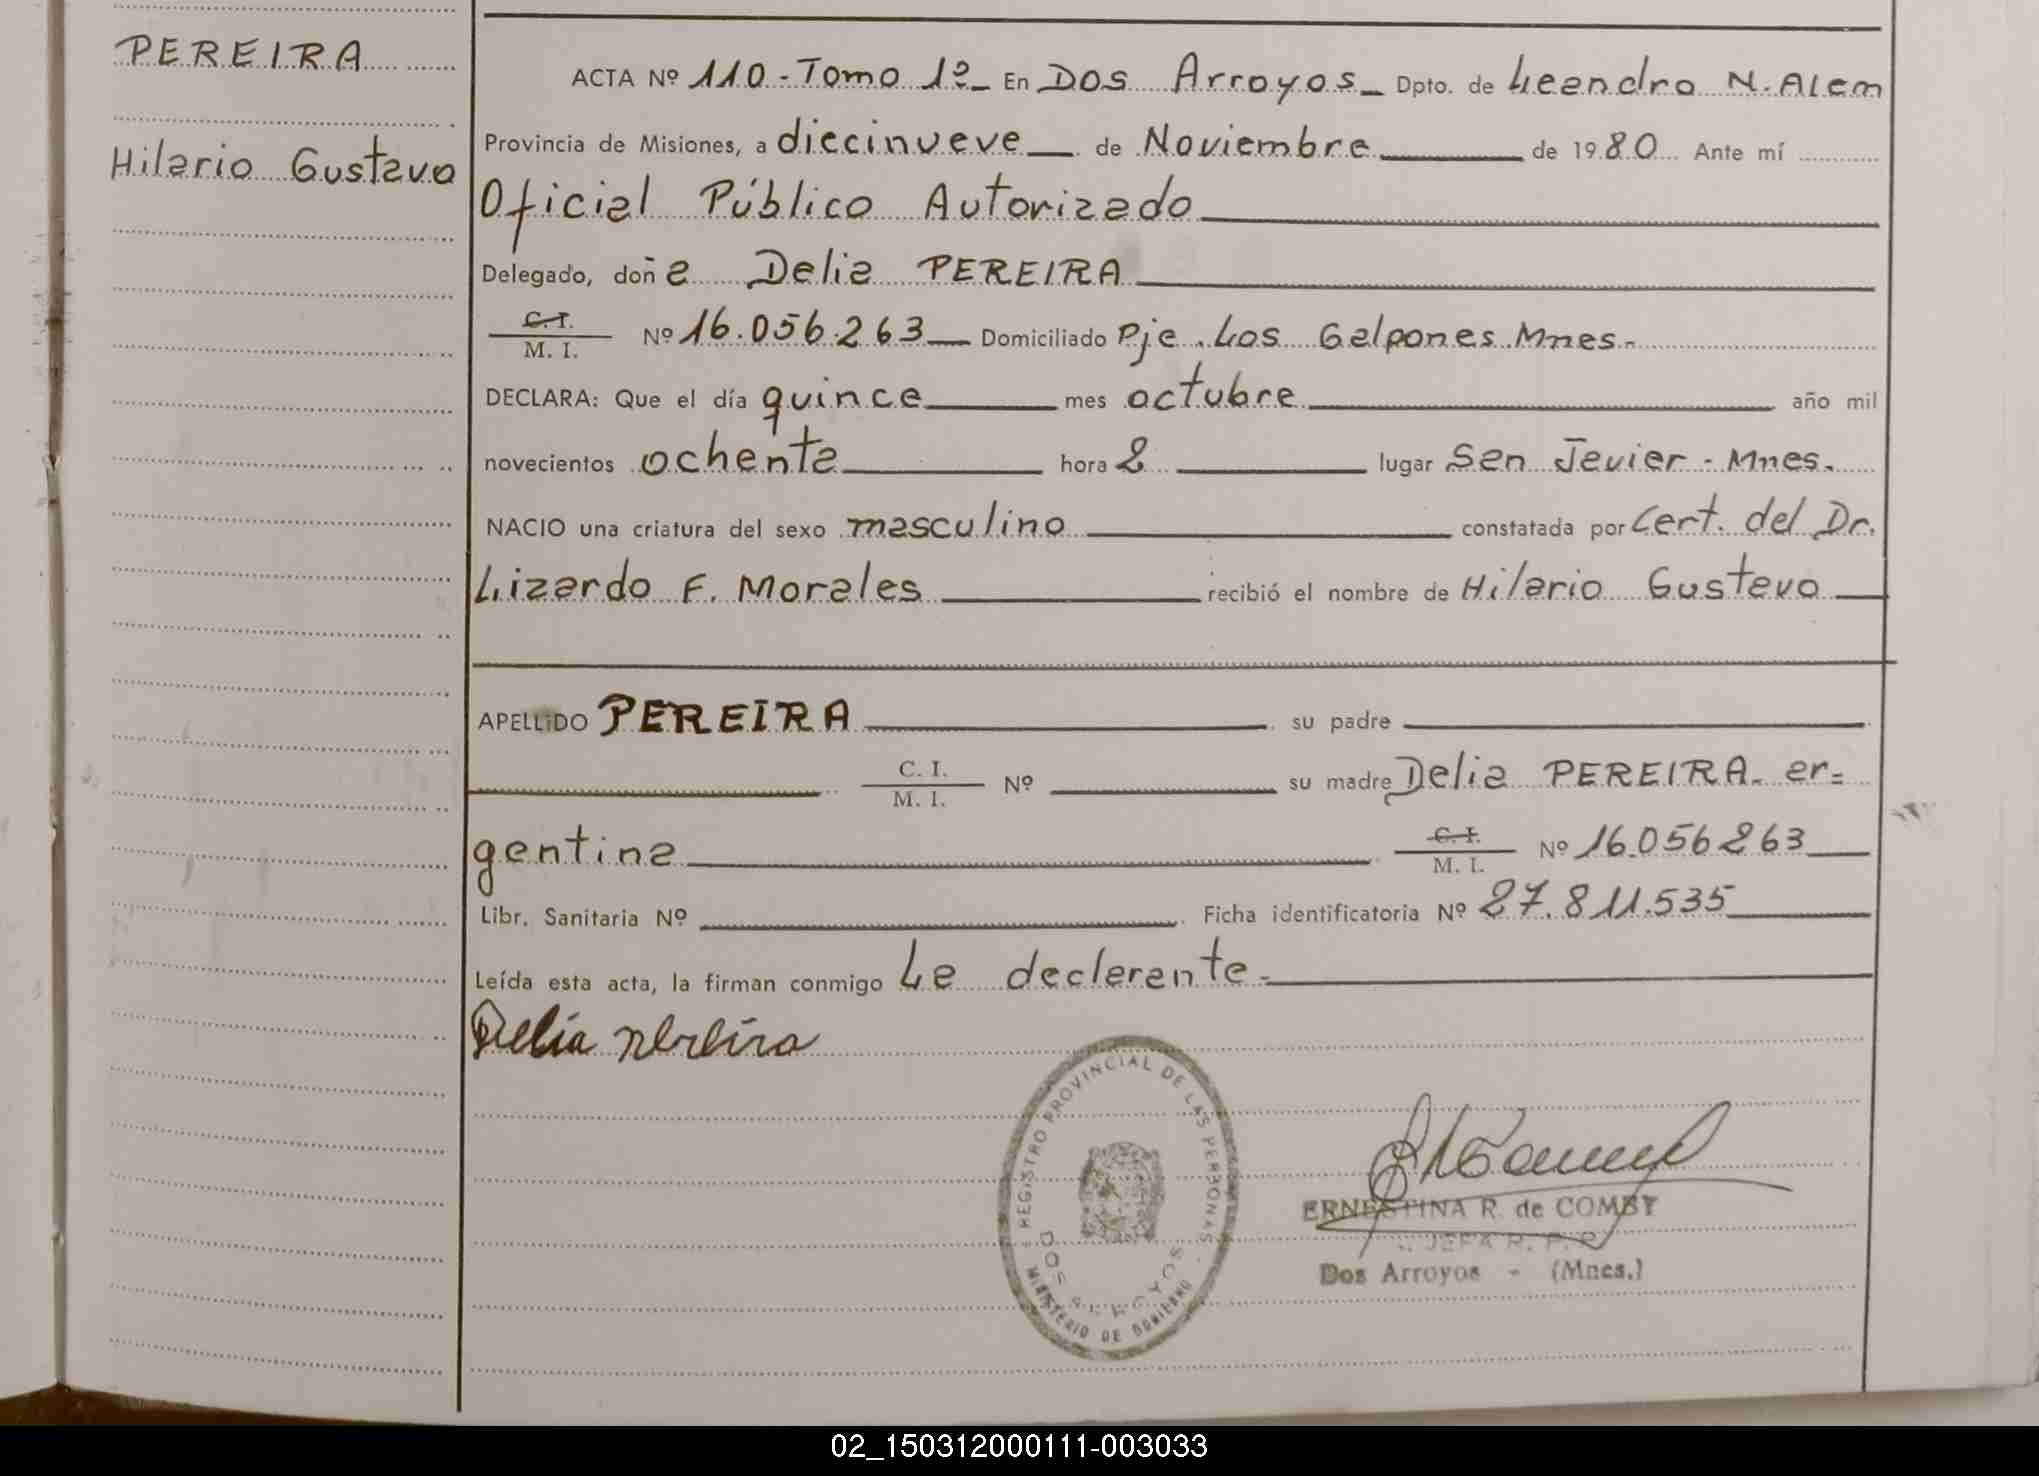 PEREIRA
Hilario Gustavo
ACTA Nº 110 - Tomo 1º - En Dos Arroyos - Dpto. de Leandro N. Alem
Provincia de Misiones, a diecinueve de Noviembre de 1980 Ante mí
Oficial Público Autorizado
Delegado, doña Delia PEREIRA
C. I.
M. I. Nº 16.056.263 Domiciliado Pje. Los Galpones Mnes.
DECLARA: Que el día quince mes octubre año mil
novecientos ochenta hora 2 lugar San Javier - Mnes.
NACIO una criatura del sexo masculino constatada por Cert. del Dr.
Lizardo F. Morales recibió el nombre de Hilario Gustavo
APELLIDO PEREIRA su padre
C. I.
M. I. Nº su madre Delia PEREIRA - ar=
gentina C. I.
M. I. Nº 16.056263
Libr. Sanitaria Nº Ficha identificatoria Nº 27.811.535
Leída esta acta, la firman conmigo La declarante -
Delia Pereira
REGISTRO PROVINCIAL DE LAS PERSONAS
DOS ARROYOS
MINISTERIO DE GOBIERNO
ERNESTINA R. de COMBY
JEFA R. P. P.
Dos Arroyos - (Mnes.)
02_150312000111-003033